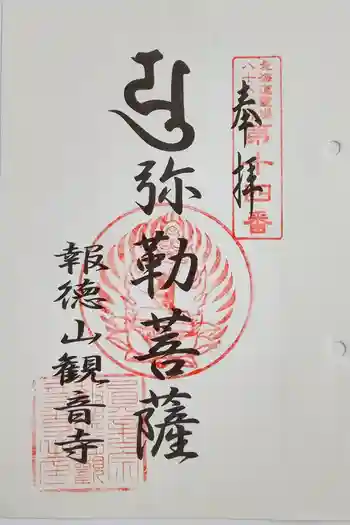 奉拝
北海道霊場
八十八
第十四番
弥勒菩薩
報徳山観音寺